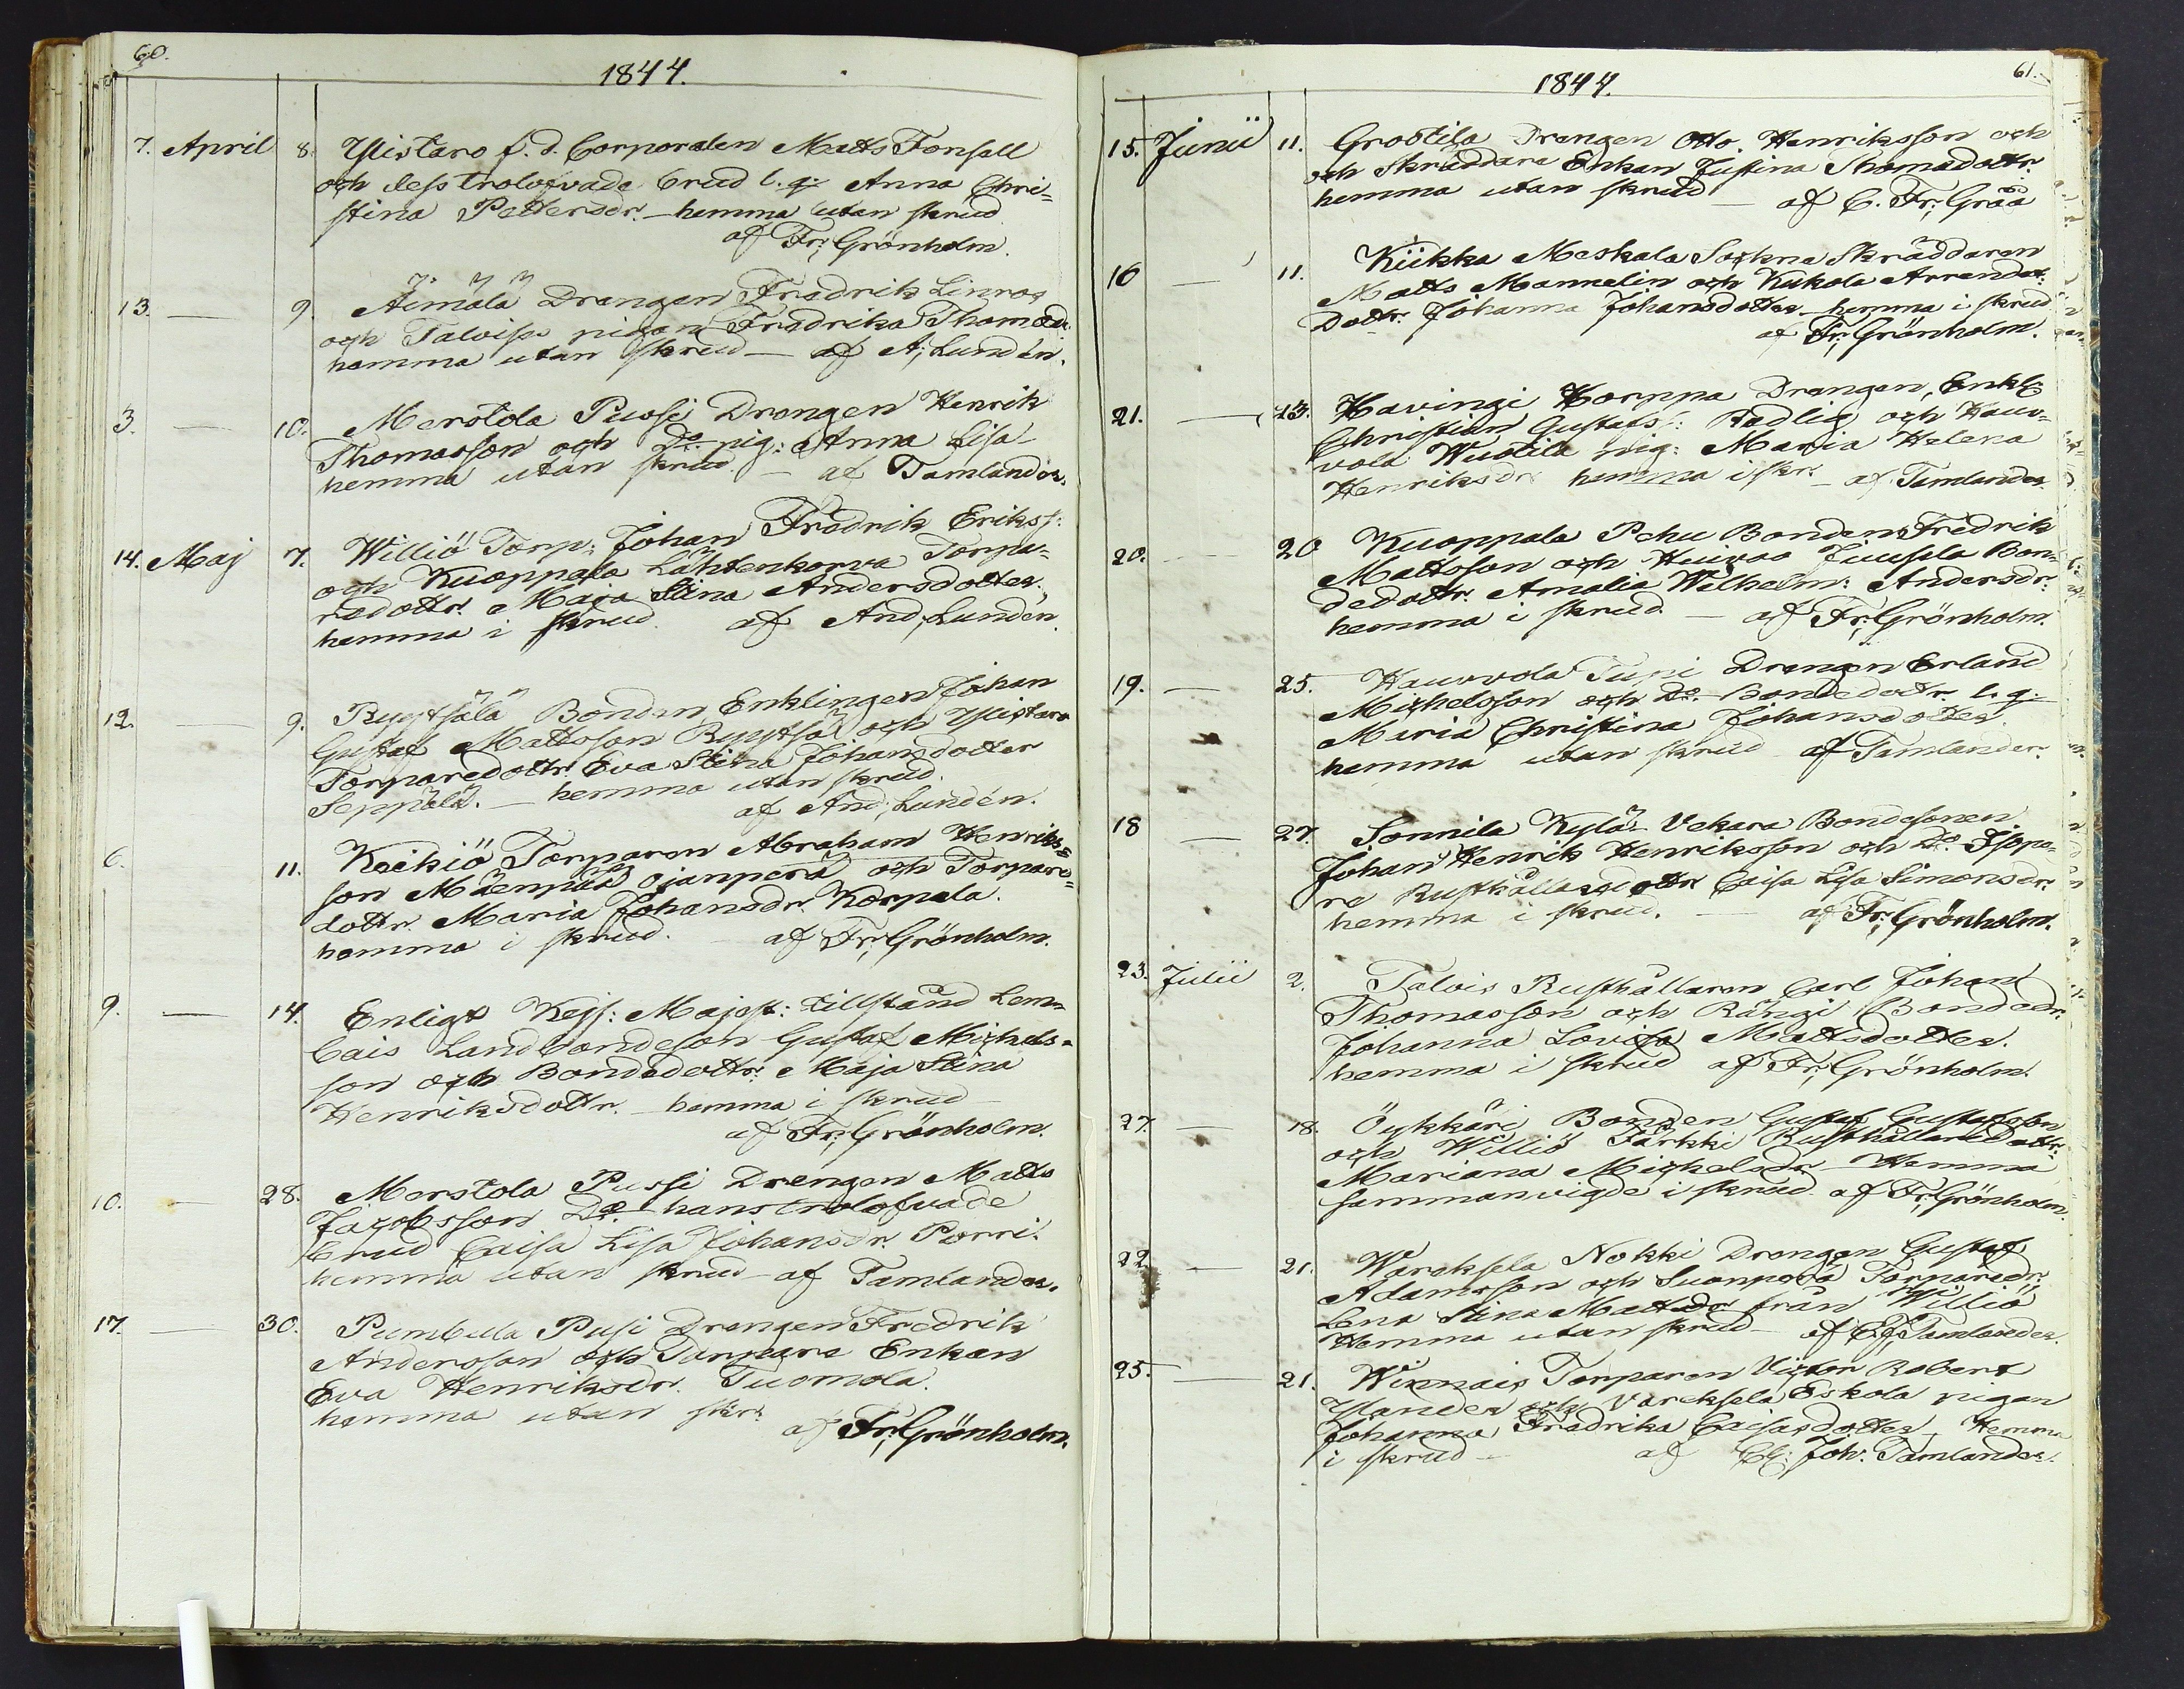 60.
1844.
7. April 8. Ylistaro f. d. Corporalen Matts Fonsell
och dess trolofvade brud b. q: Anna Chri=
stina Pettersdr. – hemma utan skrud
af Fr; Grönholm.
13. — 9. Äimälä Drengen Fredrik Linros
och Talvis pigan Fredrika Thomasdr.
hemma utan skrud – af A; Lundén.
3. — 10. Merstola Pussi Drengen Henrik
Thomasson och Do. pig: Anna Lisa
hemma utan skrud. – af Tamlander.
14. Maj 7. Williö Torp: Johan Fredrik Erikss:
och Kuoppala Lähtenkorva Torpa=
redottr. Maja Stina Andersdotter.
hemma i skrud. af And; Lundén.
12. — 9. Ryytsälä Bonden Enklingen Johan
Gustaf Mattsson Ryytsä och Ylistaro
Torparedottr. Eva Stina Johansdotter
Seppälä. – hemma utan skrud.
af And; Lundén.
6. 11. Keikiö Torparen Abraham Henriks=
son Mäenpää Ojanperä och Torpare=
dottr. Maria Johansdr. Korpela.
hemma i skrud. – af Fr; Grönholm.
9. — 14. Enligt Kejs: Majest: tillstånd Lem=
Cais Landbondeson Gustaf Michels=
son och Bondedottr: Maja Stina
Henriksdottr. – hemma i skrud –
af Fr; Grönholm.
10. — 28. Merstola Pussi Drengen Matts
Jacobsson Do. hans trolofvade
brud Caisa Lisa Johansdr. Porri.
hemma utan skrud – af Tamlander.
17. — 30. Pumbula Pusi Drengen Fredrik
Andersson och Torpare Enkan
Eva Henriksdr. Tuomola.
hemma utan skr:
af Fr; Grönholm.
61.
1844.
15. Junii 11. Grootila Drengen Otto Henriksson och
och Skräddare Enkan Justina Thomadottr.
hemma utan skrud – af C. Fr; Gråå
16 — 11. Kiikka Meskala Sockne Skräddaren
Matts Mannelin och Kukola Arrendat:
Dottr. Johanna Johansdotter – hemma i skrud
af Fr; Grönholm.
21. — 13. Havingi Horppa Drengen, Enkl:
Christian Gustafs: Stadlig och Hau=
vola Wuotila pig: Maria Helena
Henriksdr. hemma i skr. – af Tamlander.
20. — 20 Kuoppala Pehu Bonden Fredrik
Mattsson och Huivoo Juusela Bon=
dedottr. Amalia Wilhelm: Andersdr.
hemma i skrud – af Fr; Grönholm.
19. — 25. Hauvola Tupi Drengen Erland
Michelsson och Do. Bondedottr b. q.
Maria Christina Johansdotter.
hemma utan skrud af Tamlander.
18 — 27. Sonnila Kylä-Vekara Bondesonen
Johan Henrik Henriksson och Do. Isope=
re Rusthållaredottr Caisa Lisa Simonsdr.
hemma i skrud. – af Fr; Grönholm.
23. Julii 2. Talvis Rusthållaren Carl Johan
Thomasson och Rängi Bondedr.
Johanna Lovisa Mattsdotter.
hemma i skrud af Fr; Grönholm.
27. — 18. Öykkäri Bonden Gustaf Gustafsson
och Williö Tärkki Rusthållaredottr:
Mariana Michelsdr – Hemma
sammanvigde i skrud. af Fr; Grönholm.
22. — 21. Wareksela Nokki Drengen Gustaf
Adamsson och Suonperä Torparedr.
Lena Stina Mattsdr från Williö
Hemma utan skrud – af C. J. Tamlander.
25. — 21. Winnais Torparen Victor Robert
Ylander och Vareksela Eskola pigan
Johanna Fredrika Caisasdotter – Hemma
i skrud – af Joh. Tamlander.